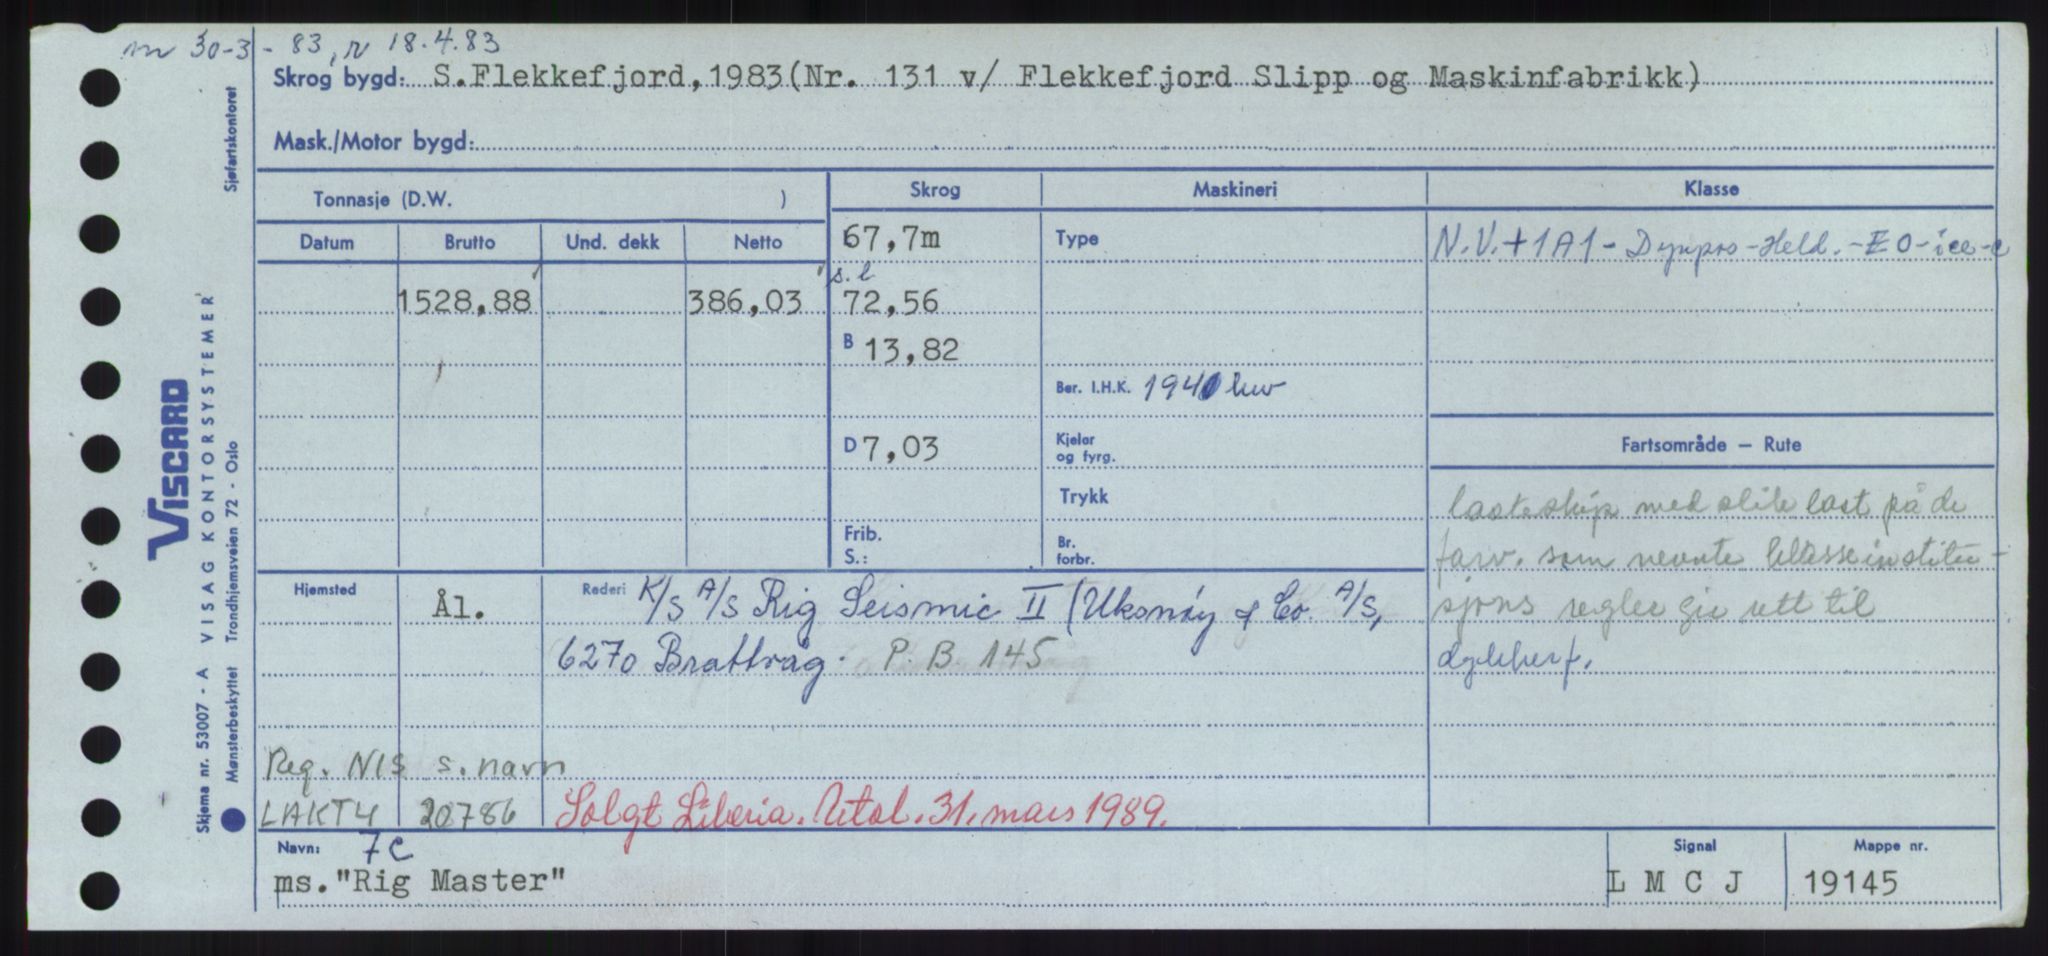 m 30-3-83, r 18.4.83
Skrog bygd: S.Flekkefjord,1983(Nr. 131 v/ Flekkefjord Slipp og Maskinfabrikk)
Mask./Motor bygd:
Tonnasje (D.W. )
Skrog Maskineri Klasse
Datum Brutto Und. dekk Netto
67,7m Type N.V.+1A1-Dynpos-Held.-E0-ice-c
s.l
1528,88 386,03 72,56
B 13,82
Ber. I.H.K. 1940 kw
D 7,03 Kjeler og fyrg.
Fartsområde — Rute
Trykk
Frib.
S.:
Br. forbr.
lasteskip med slik last på de
farv. som nevnte klasseinstitu-
sjons regler gir rett til
Hjemsted Ål.
Rederi K/S A/S Rig Seismic II (Uksnøy & Co. A/S,
6270 Brattvåg. P.B 145
Reg. NIS s. navn
LAKT4 20786 Solgt Liberia. Utsl. 31. mars 1989.
Navn: 7c
ms."Rig Master"
Signal L M C J
Mappe nr. 19145
VISCARD
Skjema nr. 53007 - A VISAG KONTORSYSTEMER
Mønsterbeskyttet Trondhjemsveien 72 - Oslo
Sjøfartskontoret